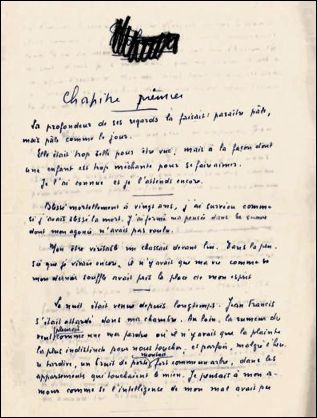 Chapitre premier
La profondeur de ses regards la faisait paraître pâle,
mais pâle comme le jour.
Elle était trop belle pour être vue, mais à la façon dont
une enfant est trop méchante pour se faire aimer.
Je l'ai connue et je l'attends encore.
Blessé mortellement à vingt ans, j'ai survécu comme
si j'avais blessé la mort. J'ai formé ma pensée dans le
dont mon agonie n'avait pas voulu.
Mon être véritable me chassait devant lui. Dans la pen-
sée que je vivais encore, il n'y avait que ma vie comme si
mon dernier souffle avait pris la place de mon esprit
La nuit était venue depuis longtemps. Jean Francis
s'était attardé dans ma chambre. Au loin, la rumeur du
vent comme une voix perdue où il n'y avait que la plainte
la plus indistincte pour nous toucher et parfois, malgré l'heu-
re tardive, un bruit de portes dans les
appartements qui touchaient le mien. Je pensais à mon a-
mour comme si l'intelligence de mon mal avait pu